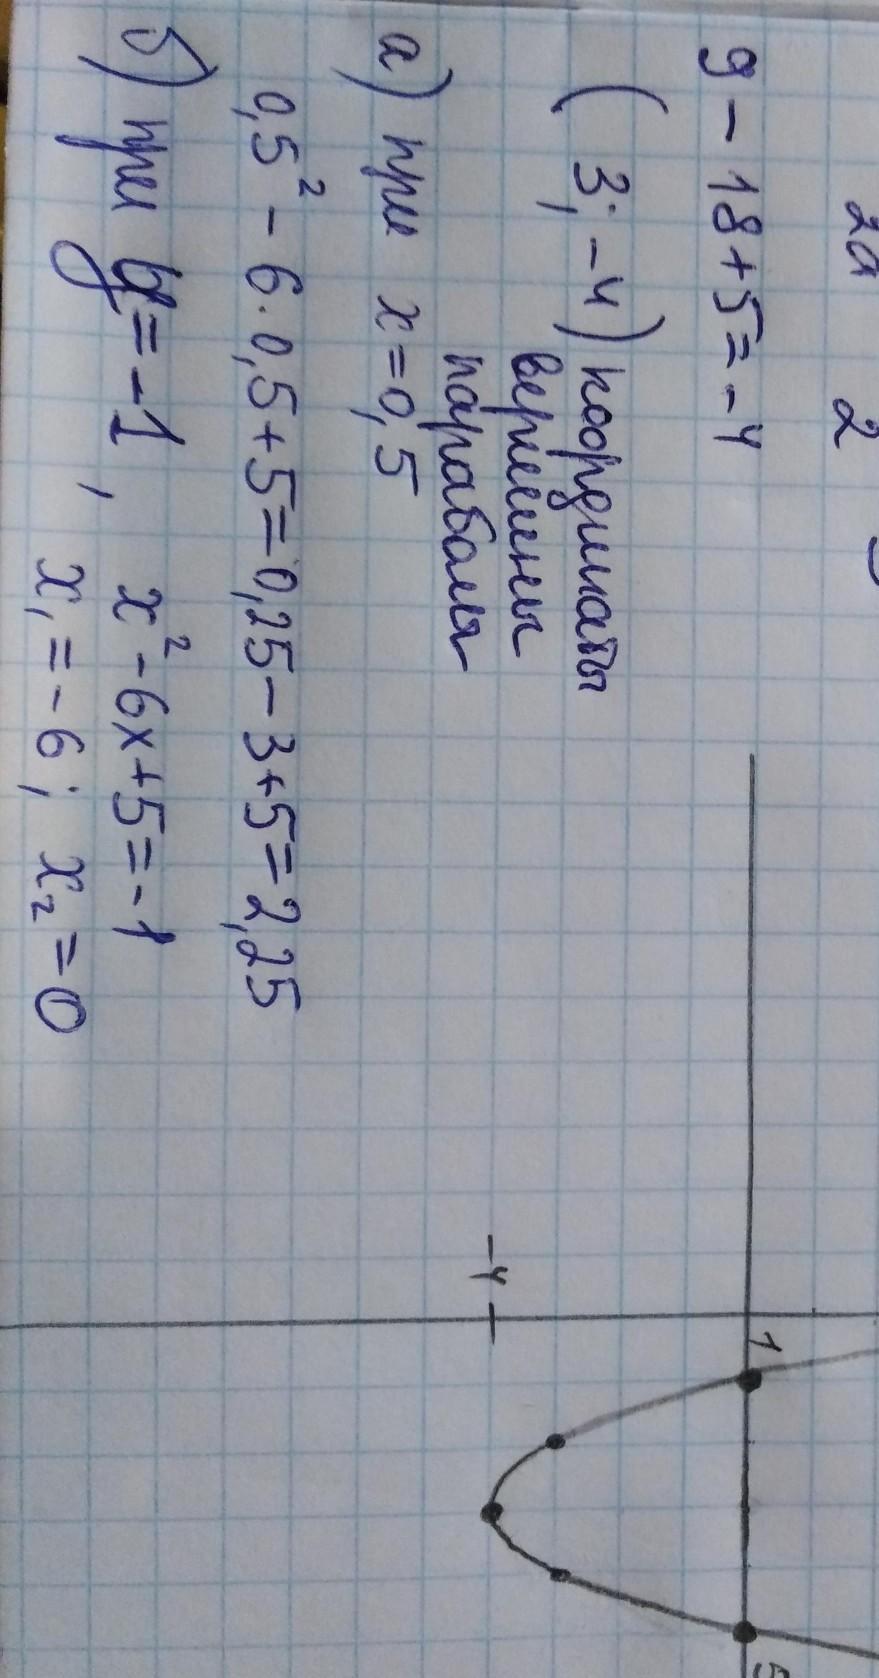 2a 2
9 - 18 + 5 = -4
(3; -4) координаты
вершины
параболы
а) при x = 0,5
0,5² - 6 · 0,5 + 5 = 0,25 - 3 + 5 = 2,25
б) при y = -1, x² - 6x + 5 = -1
x₁ = -6; x₂ = 0
1 5
-4